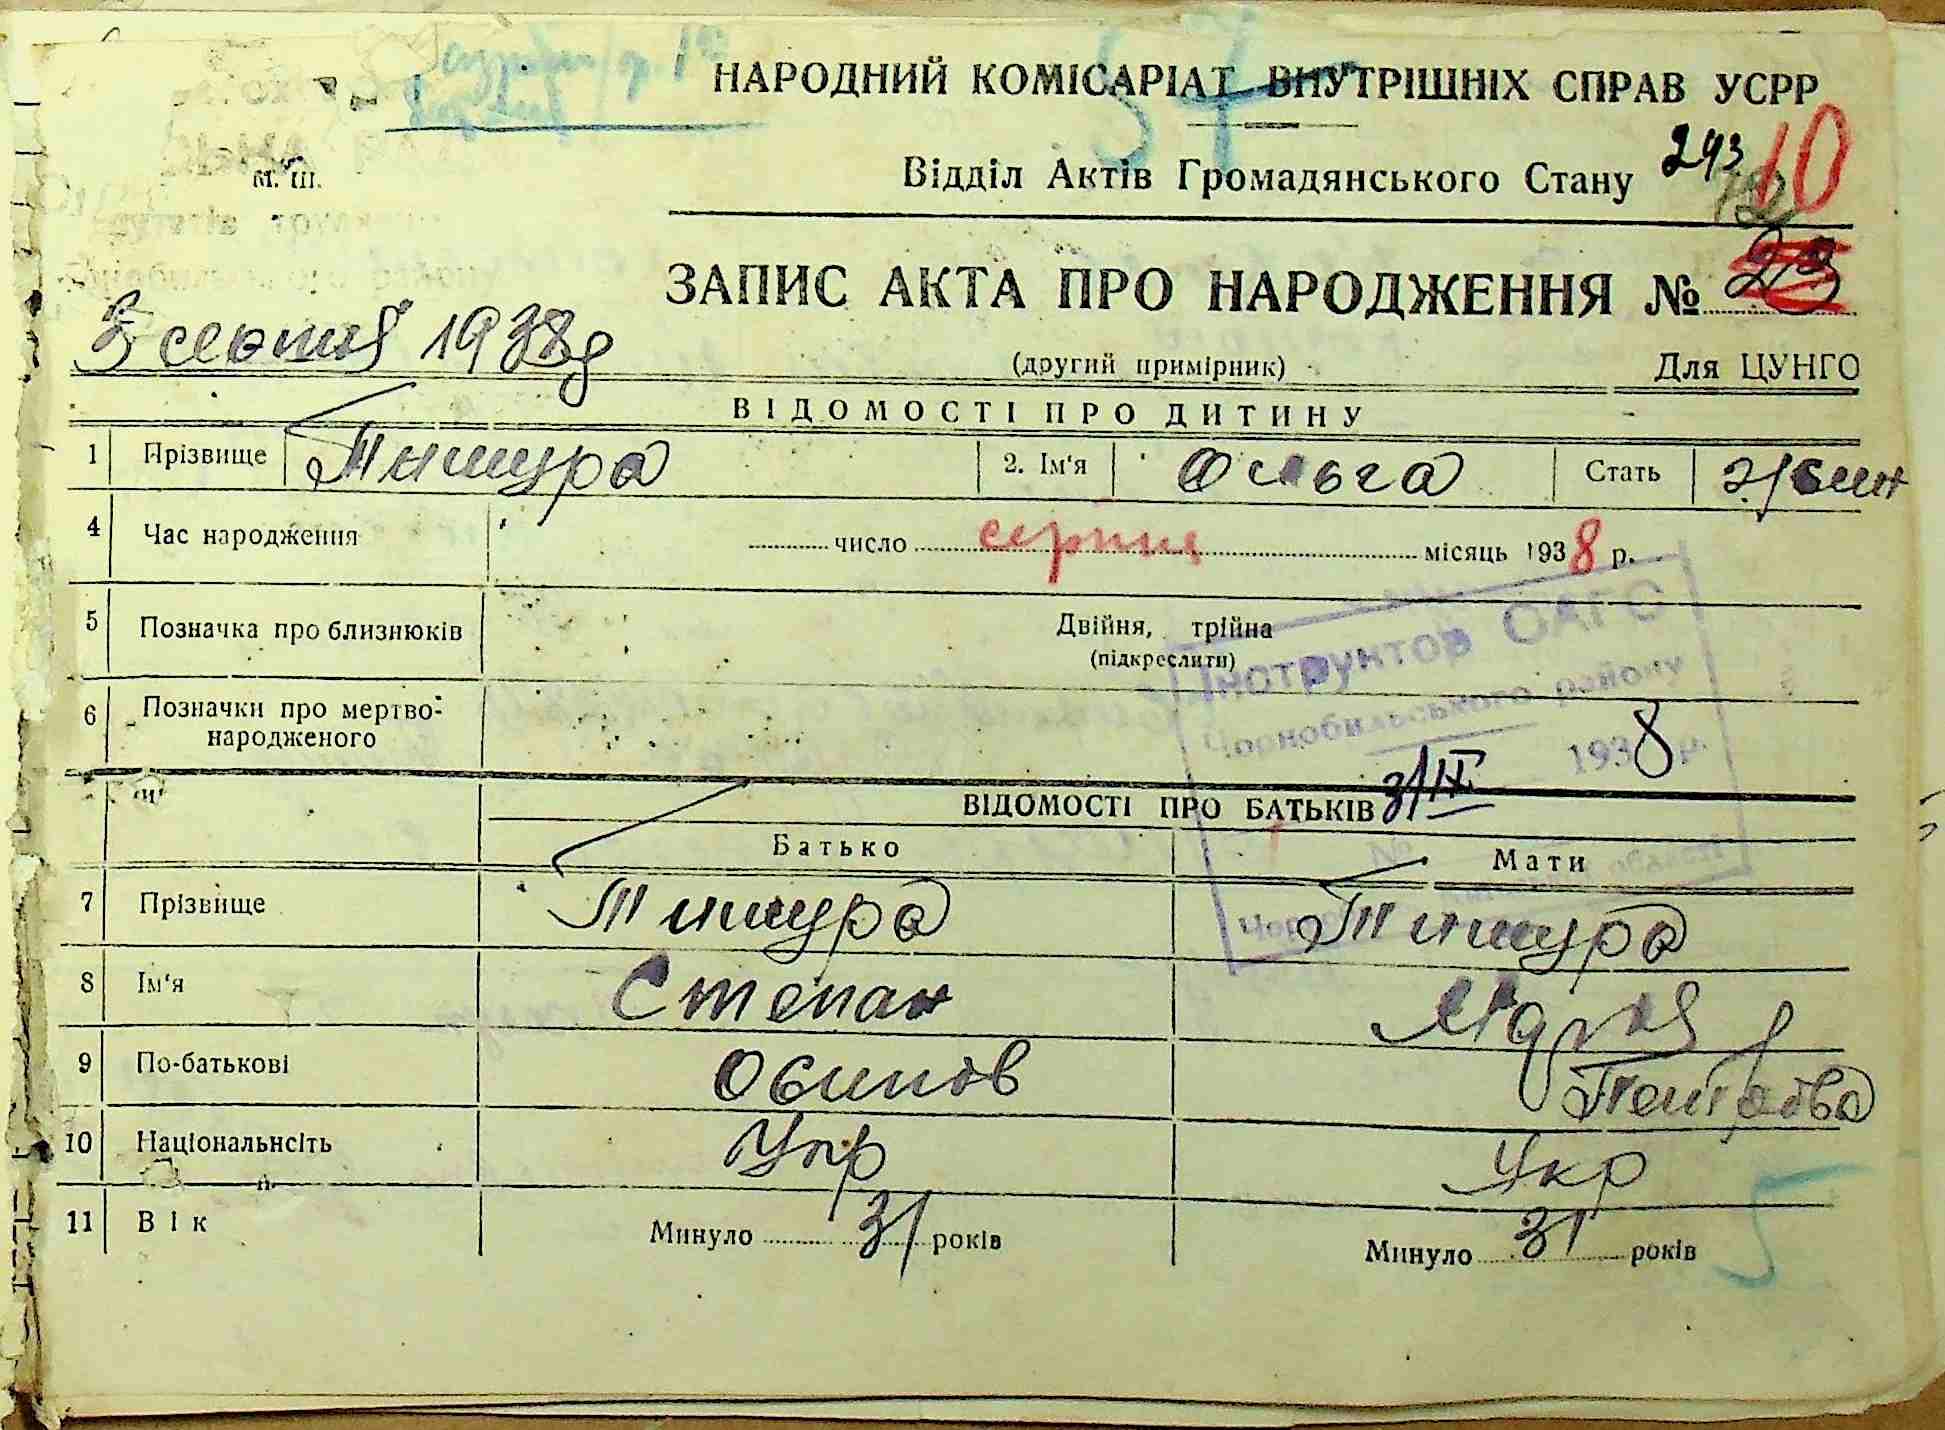 57
НАРОДНИЙ КОМІСАРІАТ ВНУТРІШНІХ СПРАВ УСРР
М. Ш.
Відділ Актів Громадянського Стану 243 10
ЗАПИС АКТА ПРО НАРОДЖЕННЯ № 23
3 1938
(другий примірник) Для ЦУНГО
ВІДОМОСТІ ПРО ДИТИНУ
1 Прізвище Тишура 2. Ім'я Ольга Стать жін
4 Час народження число серпня місяць 1938 р.
5 Позначка про близнюків Двійня, трійна
(підкреслити)
Інструктор ОАГС
Чорнобильського району
1938 р.
3/IX
№
6 Позначки про мертво-
народженого
ВІДОМОСТІ ПРО БАТЬКІВ
Батько Мати
7 Прізвище Тишура Тишура
8 Ім'я Степан
9 По-батькові Осипов
10 Національнсіть Укр Укр
11 Вік Минуло 31 років Минуло 31 років
5